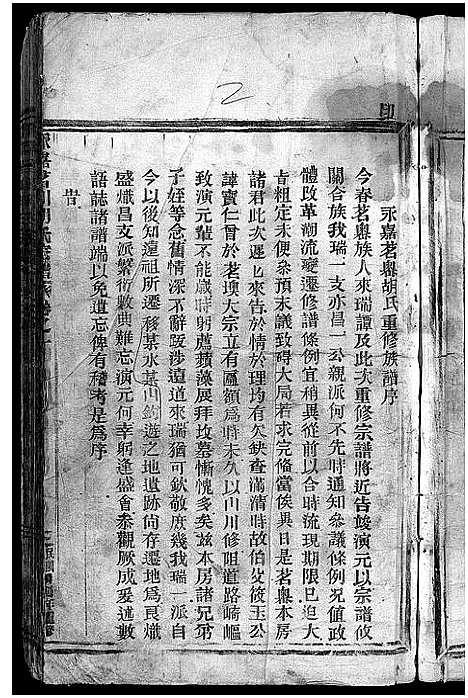 2
印
永嘉茗嶴胡氏重修族譜序
今春茗嶴族人來瑞譚及此次重修宗譜將近告竣演元以宗譜攸
關合族我瑞一支亦昌一公親派何不先時通知叅議條例况值政
體改革潮流變遷修譜條例宜稍異從前以合時流現期限已迫大
㫖粗定未便叅預末議致碍大局若求完俻當俟異日是茗嶴本房
諸君此次遲乜來告於情於理均有欠缺查滿清時故伯攵筱玉公
諱寳仁曾於茗墺大宗立有匾額爲時未久以山川修阻道路崎嶇
致演元輩不能歲時躬薦蘋藻展拜坟墓慚愧多矣兹本房諸兄弟
子姪等念舊情深不辭跋涉遠道來瑞猶可欽敬庶幾我瑞一派自
今以後知遑祖所遷移某水某山釣遊之地遺跡尙存遷地爲良熾
盛熾昌支派繁衍數典難忘演元何幸躬逢盛會叅觀厥成爰述數
語誌諸譜端以免遺忘俾有稽考是爲序
旹